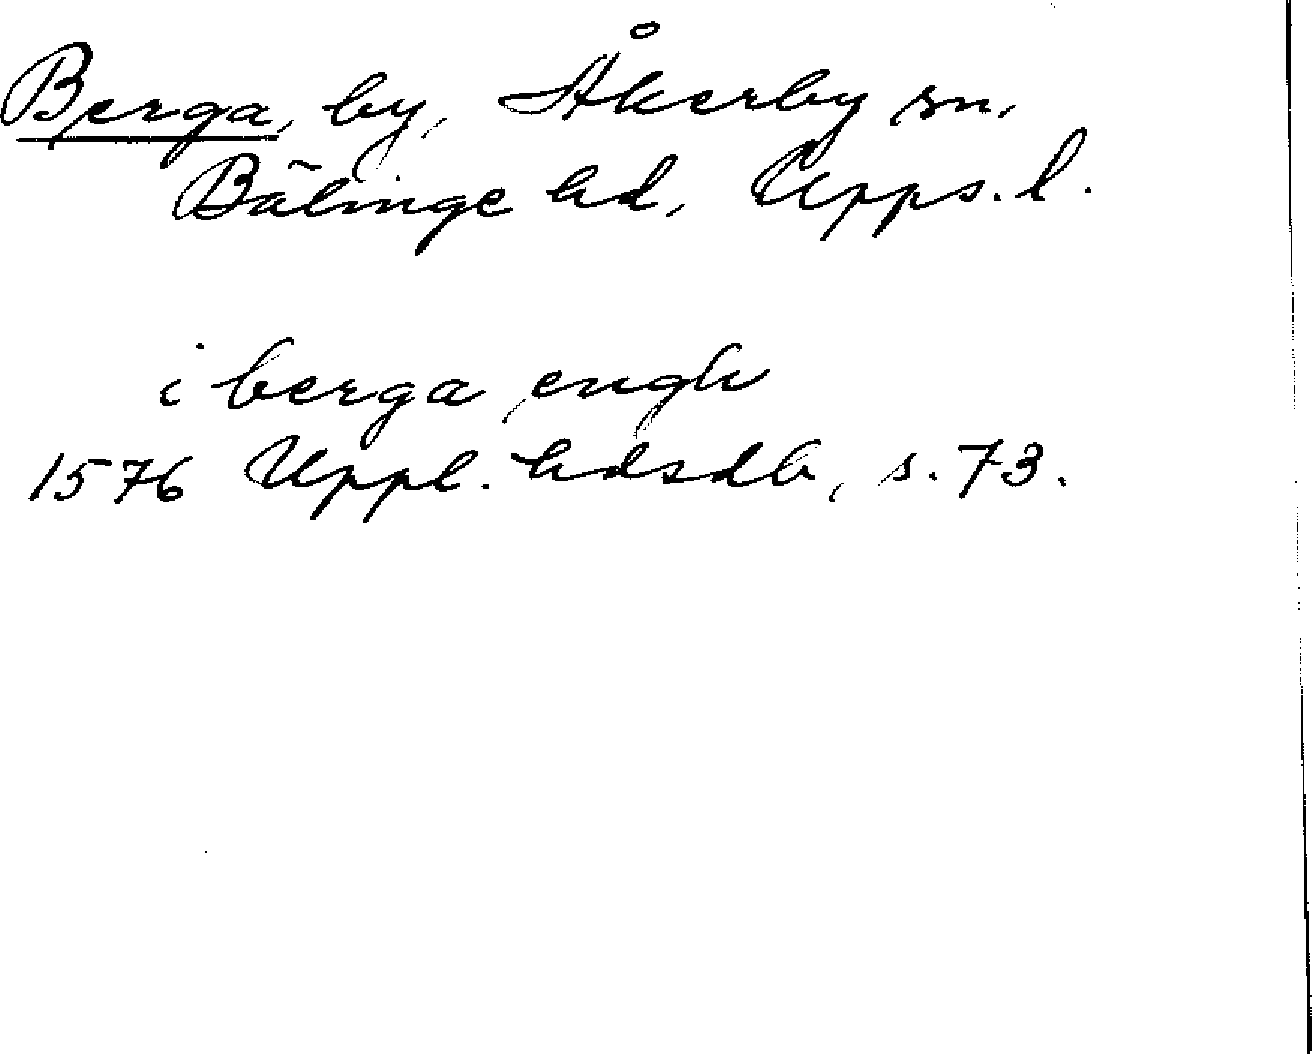 Berga, by, Åkerby sn,
Bälinge hd, Upps. l.
i berga engh
1576 Uppl. hdsdb, s. 73.